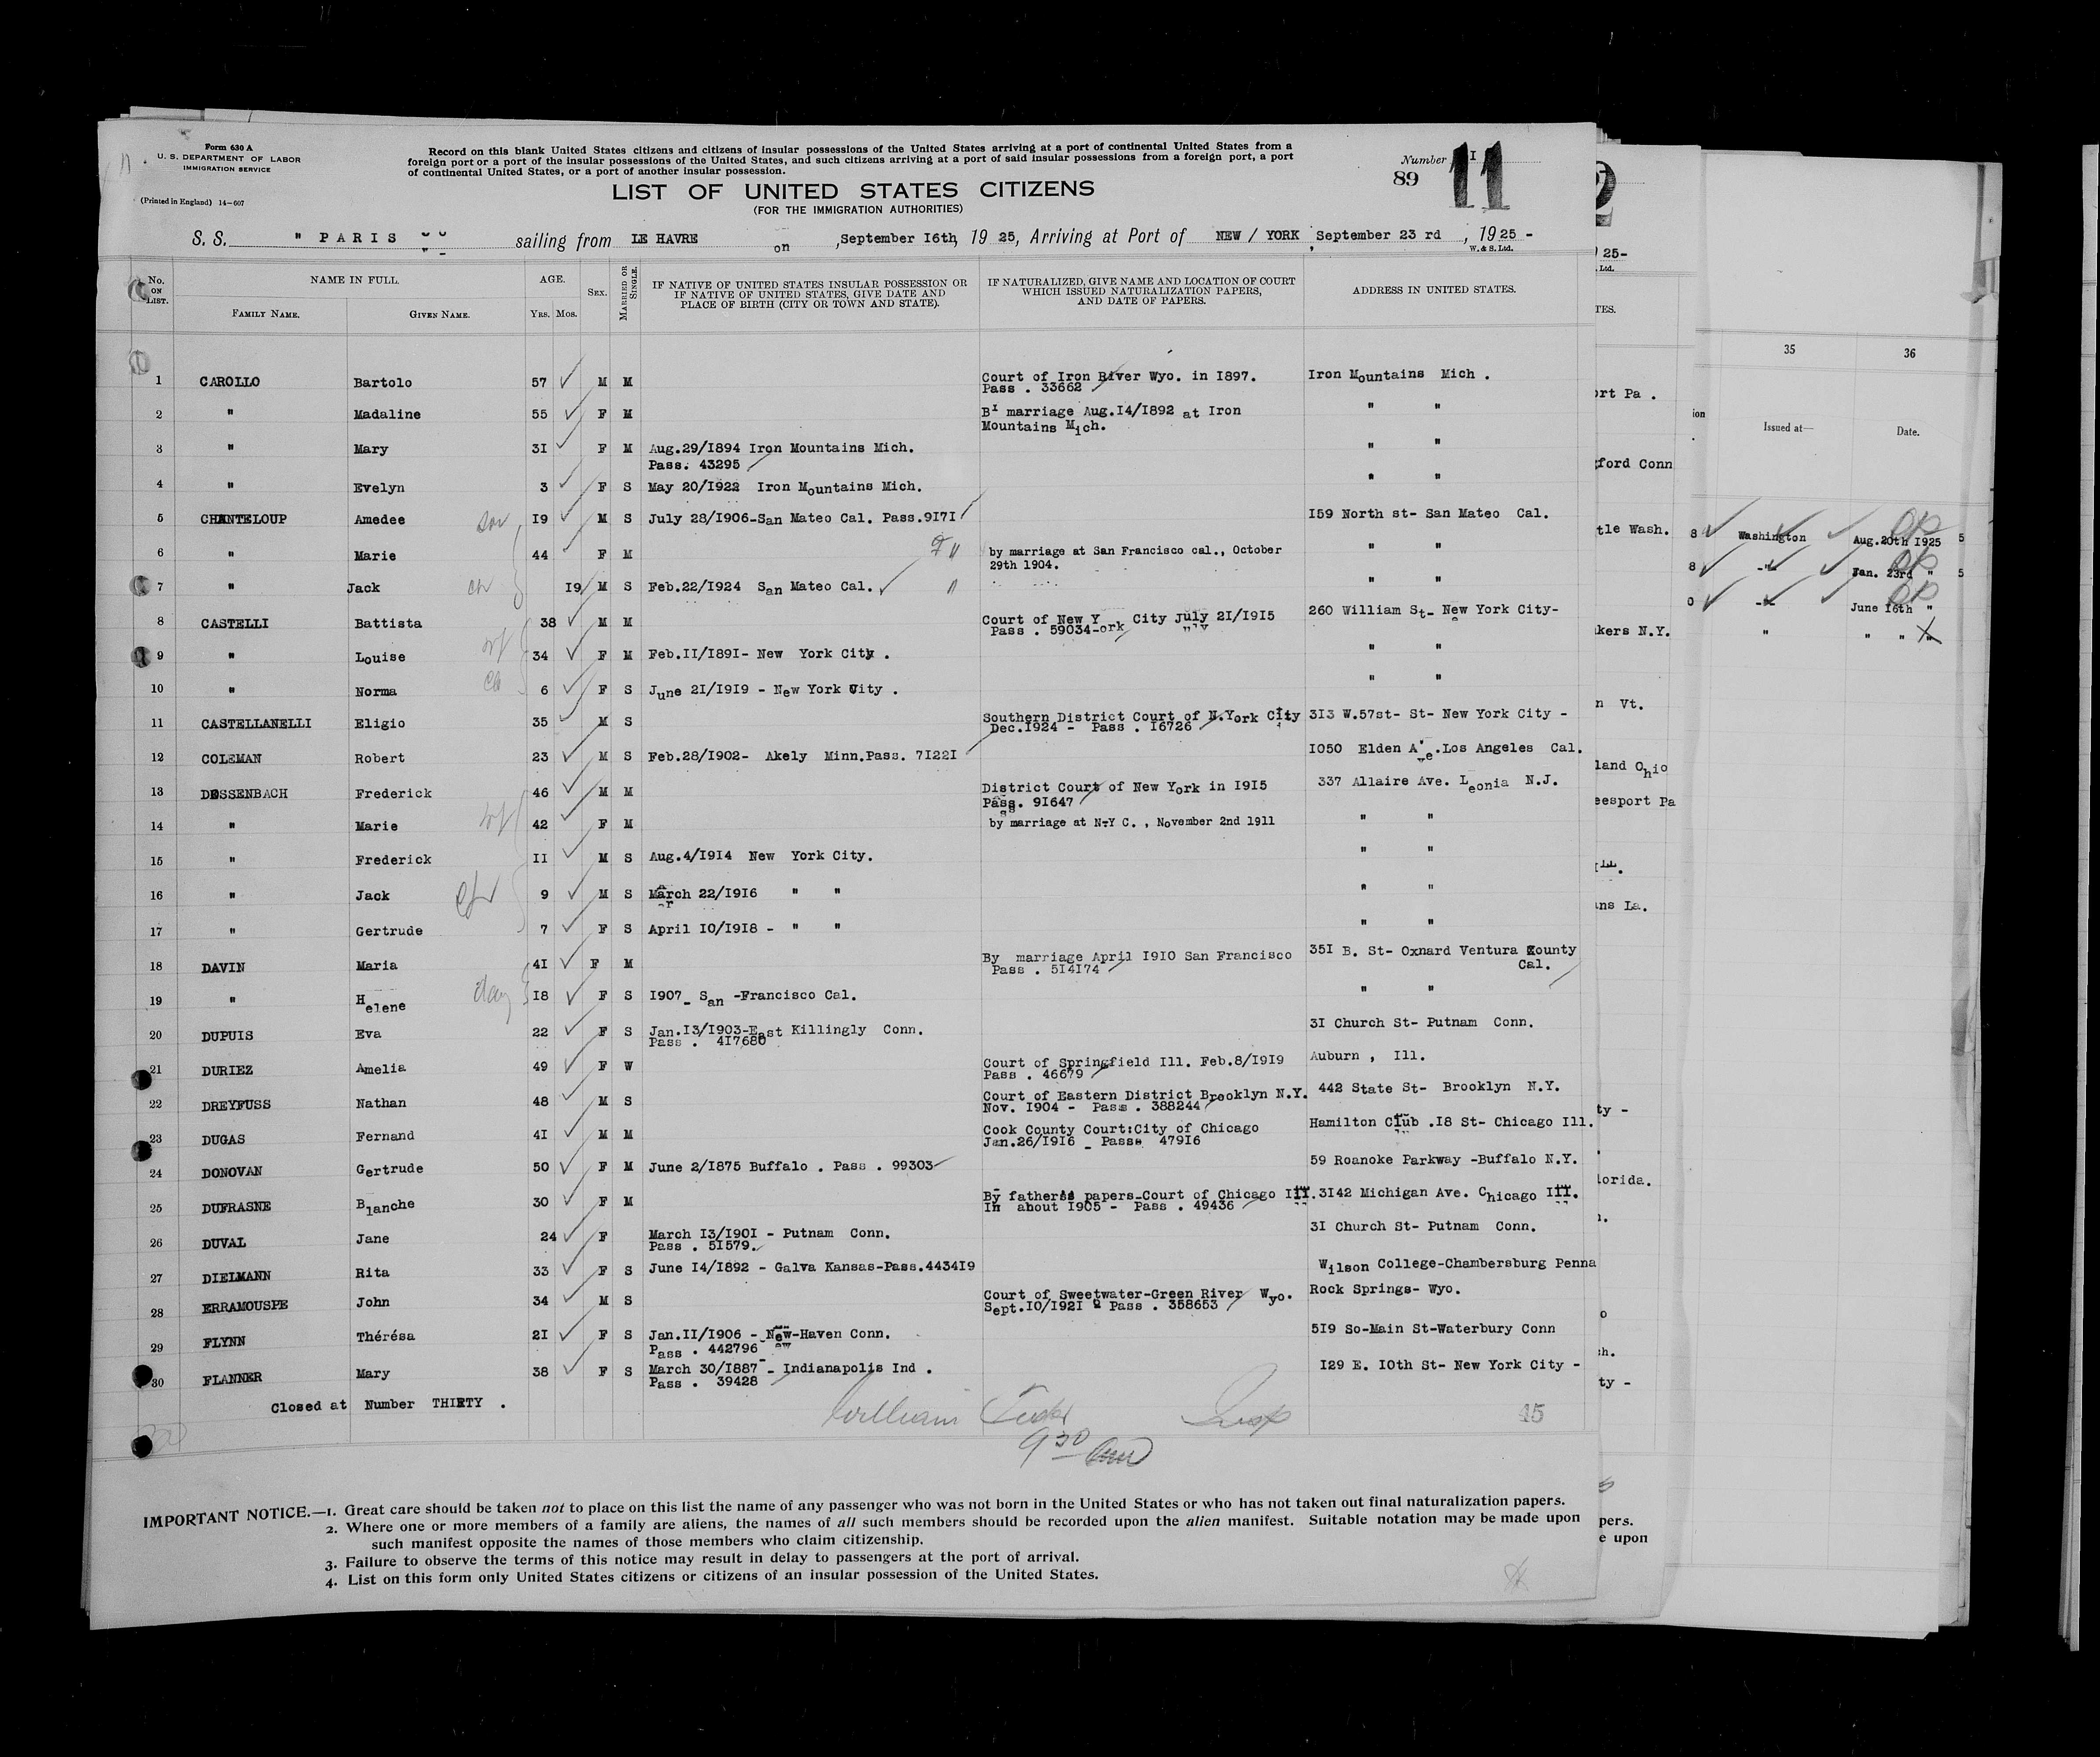 Form 630 A
U. S. DEPARTMENT OF LABOR
IMMIGRATION SERVICE
(Printed in England) 14-607
Record on this blank United States citizens and citizens of insular possessions of the United States arriving at a port of continental United States from a
foreign port or a port of the insular possessions of the United States, and such citizens arriving at a port of said insular possessions from a foreign port, a port
of continental United States, or a port of another insular possession.
LIST OF UNITED STATES CITIZENS
(FOR THE IMMIGRATION AUTHORITIES)
Number I
89 11
S. S. " PARIS " sailing from LE HAVRE on , September I6th, 19 25, Arriving at Port of NEW / YORK , September 23 rd , 19 25 -
W. & S. Ltd.
No. ON LIST. NAME IN FULL. AGE. SEX. MARRIED OR SINGLE. IF NATIVE OF UNITED STATES INSULAR POSSESSION OR IF NATIVE OF UNITED STATES, GIVE DATE AND PLACE OF BIRTH (CITY OR TOWN AND STATE). IF NATURALIZED, GIVE NAME AND LOCATION OF COURT WHICH ISSUED NATURALIZATION PAPERS, AND DATE OF PAPERS. ADDRESS IN UNITED STATES.
FAMILY NAME. GIVEN NAME. YRS. MOS.
1 CAROLLO Bartolo 57 M M Court of Iron River Wyo. in I897. Iron Mountains Mich .
Pass . 33662
2 " Madaline 55 F M BI marriage Aug.I4/I892 at Iron " "
Mountains Mich.
3 " Mary 3I F M Aug.29/I894 Iron Mountains Mich. " "
Pass. 43295
4 " Evelyn 3 F S May 20/I922 Iron Mountains Mich. " "
5 CHANTELOUP Amedee son I9 M S July 28/I906-San Mateo Cal. Pass.9I7I I59 North st- San Mateo Cal.
6 " Marie 44 F M by marriage at San Francisco cal., October " "
29th 1904.
7 " Jack ch I9 M S Feb.22/I924 San Mateo Cal. " "
8 CASTELLI Battista 38 M M Court of New York City July 2I/I9I5 260 William St- New York City-
Pass . 59034-
9 " Louise wf 34 F M Feb.II/I89I- New York City . " "
10 " Norma ch 6 F S June 2I/I9I9 - New York City . " "
11 CASTELLANELLI Eligio 35 M S Southern District Court of N.York City 3I3 W.57st- St- New York City -
Dec.I924 - Pass . I6726
12 COLEMAN Robert 23 M S Feb.28/I902- Akely Minn.Pass. 7I22I I050 Elden Ave.Los Angeles Cal.
13 DESSENBACH Frederick 46 M M District Court of New York in I9I5 337 Allaire Ave. Leonia N.J.
Pass. 9I647
14 " Marie wf 42 F M by marriage at N-Y C. , November 2nd 1911 " "
15 " Frederick II M S Aug.4/I9I4 New York City. " "
16 " Jack 9 M S March 22/I9I6 " " " "
17 " Gertrude 7 F S April I0/I9I8 - " " " "
18 DAVIN Maria 4I F M By marriage April I9I0 San Francisco 35I B. St- Oxnard Ventura County
Pass . 5I4I74 Cal.
19 " Helene dau I8 F S I907_ San -Francisco Cal. " "
20 DUPUIS Eva 22 F S Jan.I3/I903-East Killingly Conn. 3I Church St- Putnam Conn.
Pass . 4I7680
21 DURIEZ Amelia 49 F W Court of Springfield Ill. Feb.8/I9I9 Auburn , Ill.
Pass . 46679
22 DREYFUSS Nathan 48 M S Court of Eastern District Brooklyn N.Y. 442 State St- Brooklyn N.Y.
Nov. I904 - Pass . 388244
23 DUGAS Fernand 4I M M Cook County Court:City of Chicago Hamilton Club .I8 St- Chicago Ill.
Jan.26/I9I6 _ Pass. 479I6
24 DONOVAN Gertrude 50 F M June 2/I875 Buffalo . Pass . 99303 59 Roanoke Parkway -Buffalo N.Y.
25 DUFRASNE Blanche 30 F M By fathers papers-Court of Chicago Ill. 3I42 Michigan Ave. Chicago Ill.
In about I905 - Pass . 49436
26 DUVAL Jane 24 F March I3/I90I - Putnam Conn. 3I Church St- Putnam Conn.
Pass . 5I579.
27 DIELMANN Rita 33 F S June I4/I892 - Galva Kansas-Pass.4434I9 Wilson College-Chambersburg Penna
28 ERRAMOUSPE John 34 M S Court of Sweetwater-Green River Wyo. Rock Springs- Wyo.
Sept.I0/I92I Pass . 358653
29 FLYNN Thérésa 2I F S Jan.II/I906 - New-Haven Conn. 5I9 So-Main St-Waterbury Conn
Pass . 442796
30 FLANNER Mary 38 F S March 30/I887 - Indianapolis Ind . I29 E. I0th St- New York City -
Pass . 39428
Closed at Number THIRTY .
William Insp
9 30 am
45
IMPORTANT NOTICE.—1. Great care should be taken not to place on this list the name of any passenger who was not born in the United States or who has not taken out final naturalization papers.
2. Where one or more members of a family are aliens, the names of all such members should be recorded upon the alien manifest. Suitable notation may be made upon
such manifest opposite the names of those members who claim citizenship.
3. Failure to observe the terms of this notice may result in delay to passengers at the port of arrival.
4. List on this form only United States citizens or citizens of an insular possession of the United States.
2
25-
Ltd.
TES.
ort Pa .
ford Conn
tle Wash.
kers N.Y.
n Vt.
land Ohio
eesport Pa
ans La.
ty -
lorida.
ty -
pers.
e upon
ion
35 36
Issued at— Date.
8 Washington Aug.20th 1925 5
8 -"- Jan. 23rd " 5
0 -"- June 16th "
" " " "